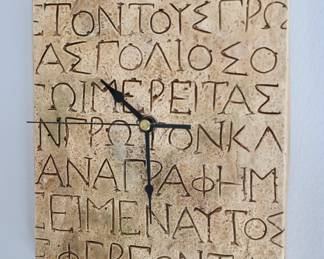 ΣΤΟΝΤΟΥΣΓΡΩ
ΑΣΓΟΛΙΟΣΟ
ΓΩΙΜΕΡΕΙΤΑΣ
ΝΓΡΩΤΟΝΚΛ
ΑΝΑΓΡΑΦΗΜ
ΕΙΜΕΝΑΥΤΟΣ